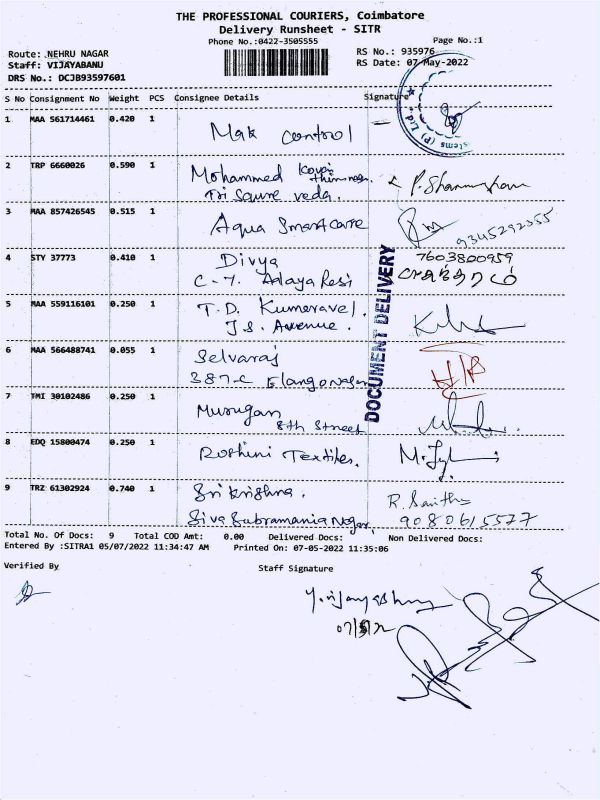 THE PROFESSIONAL COURIERS, Coimbatore
Delivery Runsheet - SITR
Phone No.:0422-3505555
Page No.:1
Route: NEHRU NAGAR
RS No.: 935976
Staff: VIJAYABANU
RS Date: 07-May-2022
DRS No.: DCJB93597601
S No Consignment No Weight PCS Consignee Details Signature
1 MAA 561714461 0.420 1
Mak control
2 TRP 6660026 0.590 1
Mohammed
Tri Squre veda. P. Shanmugham
3 MAA 857426545 0.515 1
Aqua Smartcare 9345292355
4 STY 37773 0.410 1
Divya 7603800959
C-7. Adaya Resi
5 MAA 559116101 0.250 1
T.D. Kumeravel.
J.S. Avenue.
6 MAA 566488741 0.055 1
Selvaraj
387-C Elango Nagar
7 TMI 30102486 0.250 1
Murugan
8th Street
8 EDQ 15800474 0.250 1
Roshini Textiles.
9 TRZ 61302924 0.740 1
Sri Krishna.
Siva Subramania Nagar
R. Santha
9080615577
DOCUMENT DELIVERY
Total No. Of Docs: 9 Total COD Amt: 0.00 Delivered Docs: Non Delivered Docs:
Entered By :SITRA1 05/07/2022 11:34:47 AM Printed On: 07-05-2022 11:35:06
Verified By
Staff Signature